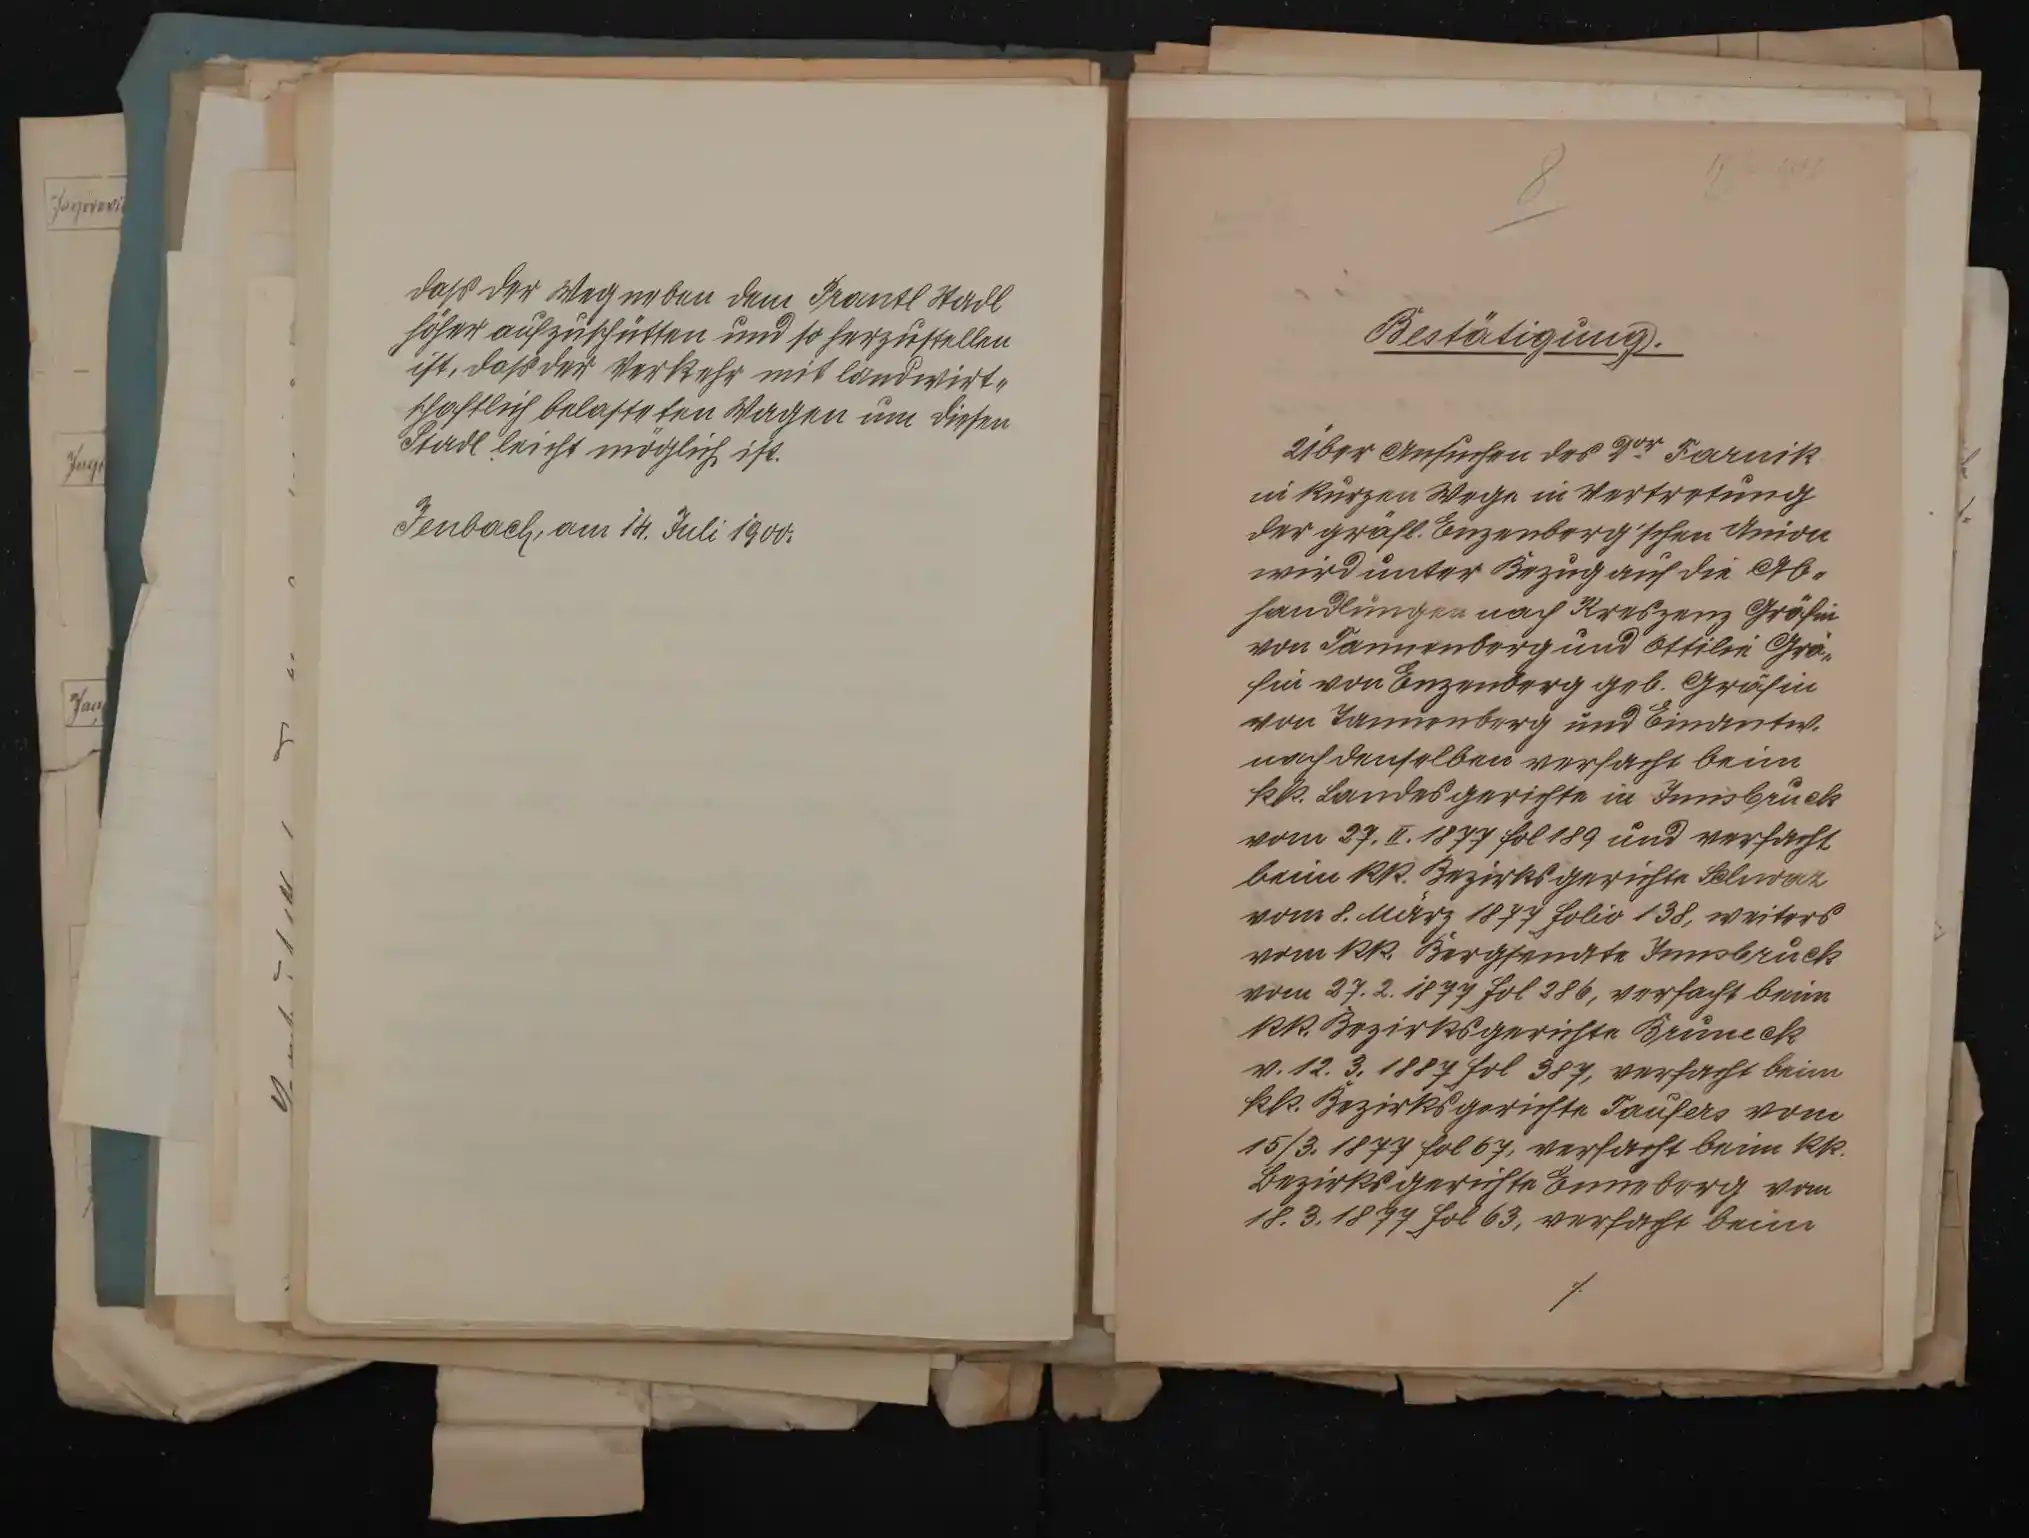 daß der Weg neben dem Prantl Stadl
höher aufzuschütten und so herzustellen
ist, daß der Verkehr mit landwirt„
schaftlich belasteten Wagen um diesen
Stadl leicht möglich ist.
Jenbach, am 14. Juli 1900.
8
Bestätigung.
Über Ansuchen des Dor Farnik
in kurzen Wege in Vertretung
der gräfl. Enzenberg'schen Union
wird unter Bezug auf die Ab„
handlungen nach Kreszenz Gräfin
von Tannenberg und Ottilie Grä„
fin von Enzenberg geb. Gräfin
von Tannenberg und Einantw.
nach denselben verfacht beim
kk. Landesgerichte in Innsbruck
vom 27. II. 1877 fol 189 und verfacht
beim kk. Bezirksgerichte Schwaz
vom 8. März 1877 folio 138, weiters
vom kk. Bergsenate Innsbruck
vom 27. 2. 1877 fol 286, verfacht beim
kk. Bezirksgerichte Bruneck
v. 12. 3. 1887 fol 387, verfacht beim
kk. Bezirksgerichte Taufers vom
15/3. 1877 fol 67, verfacht beim kk.
Bezirksgerichte Enneberg vom
18. 3. 1877 fol 63, verfacht beim
./.